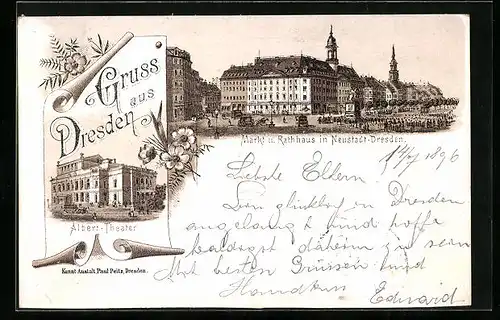 Gruss
aus
Dresden
Markt u. Rathhaus in Neustadt-Dresden.
Albert-Theater
Kunst Anstalt Paul Peitz, Dresden.
14/7 1896
Liebste Eltern!
Bin glücklich in Dresden
angelangt und hoffe
baldigst daheim zu sein
Mit besten Grüssen und
Handkuss Eduard